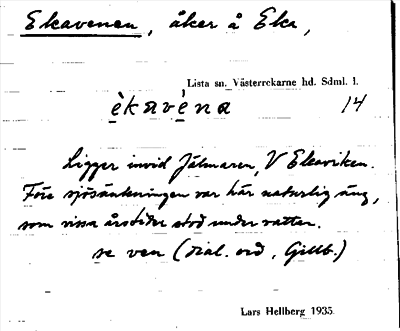 Ekavenen, åker å Eka,
Lista sn. Västerrekarne hd. Sdml. l.
èkavéna 14
Ligger invid Jälmaren, V Ekaviken.
Före sjösänkningen var här naturlig äng,
som vissa årstider stod under vatten.
se ven (dial. ord, Gillb.)
Lars Hellberg 1935